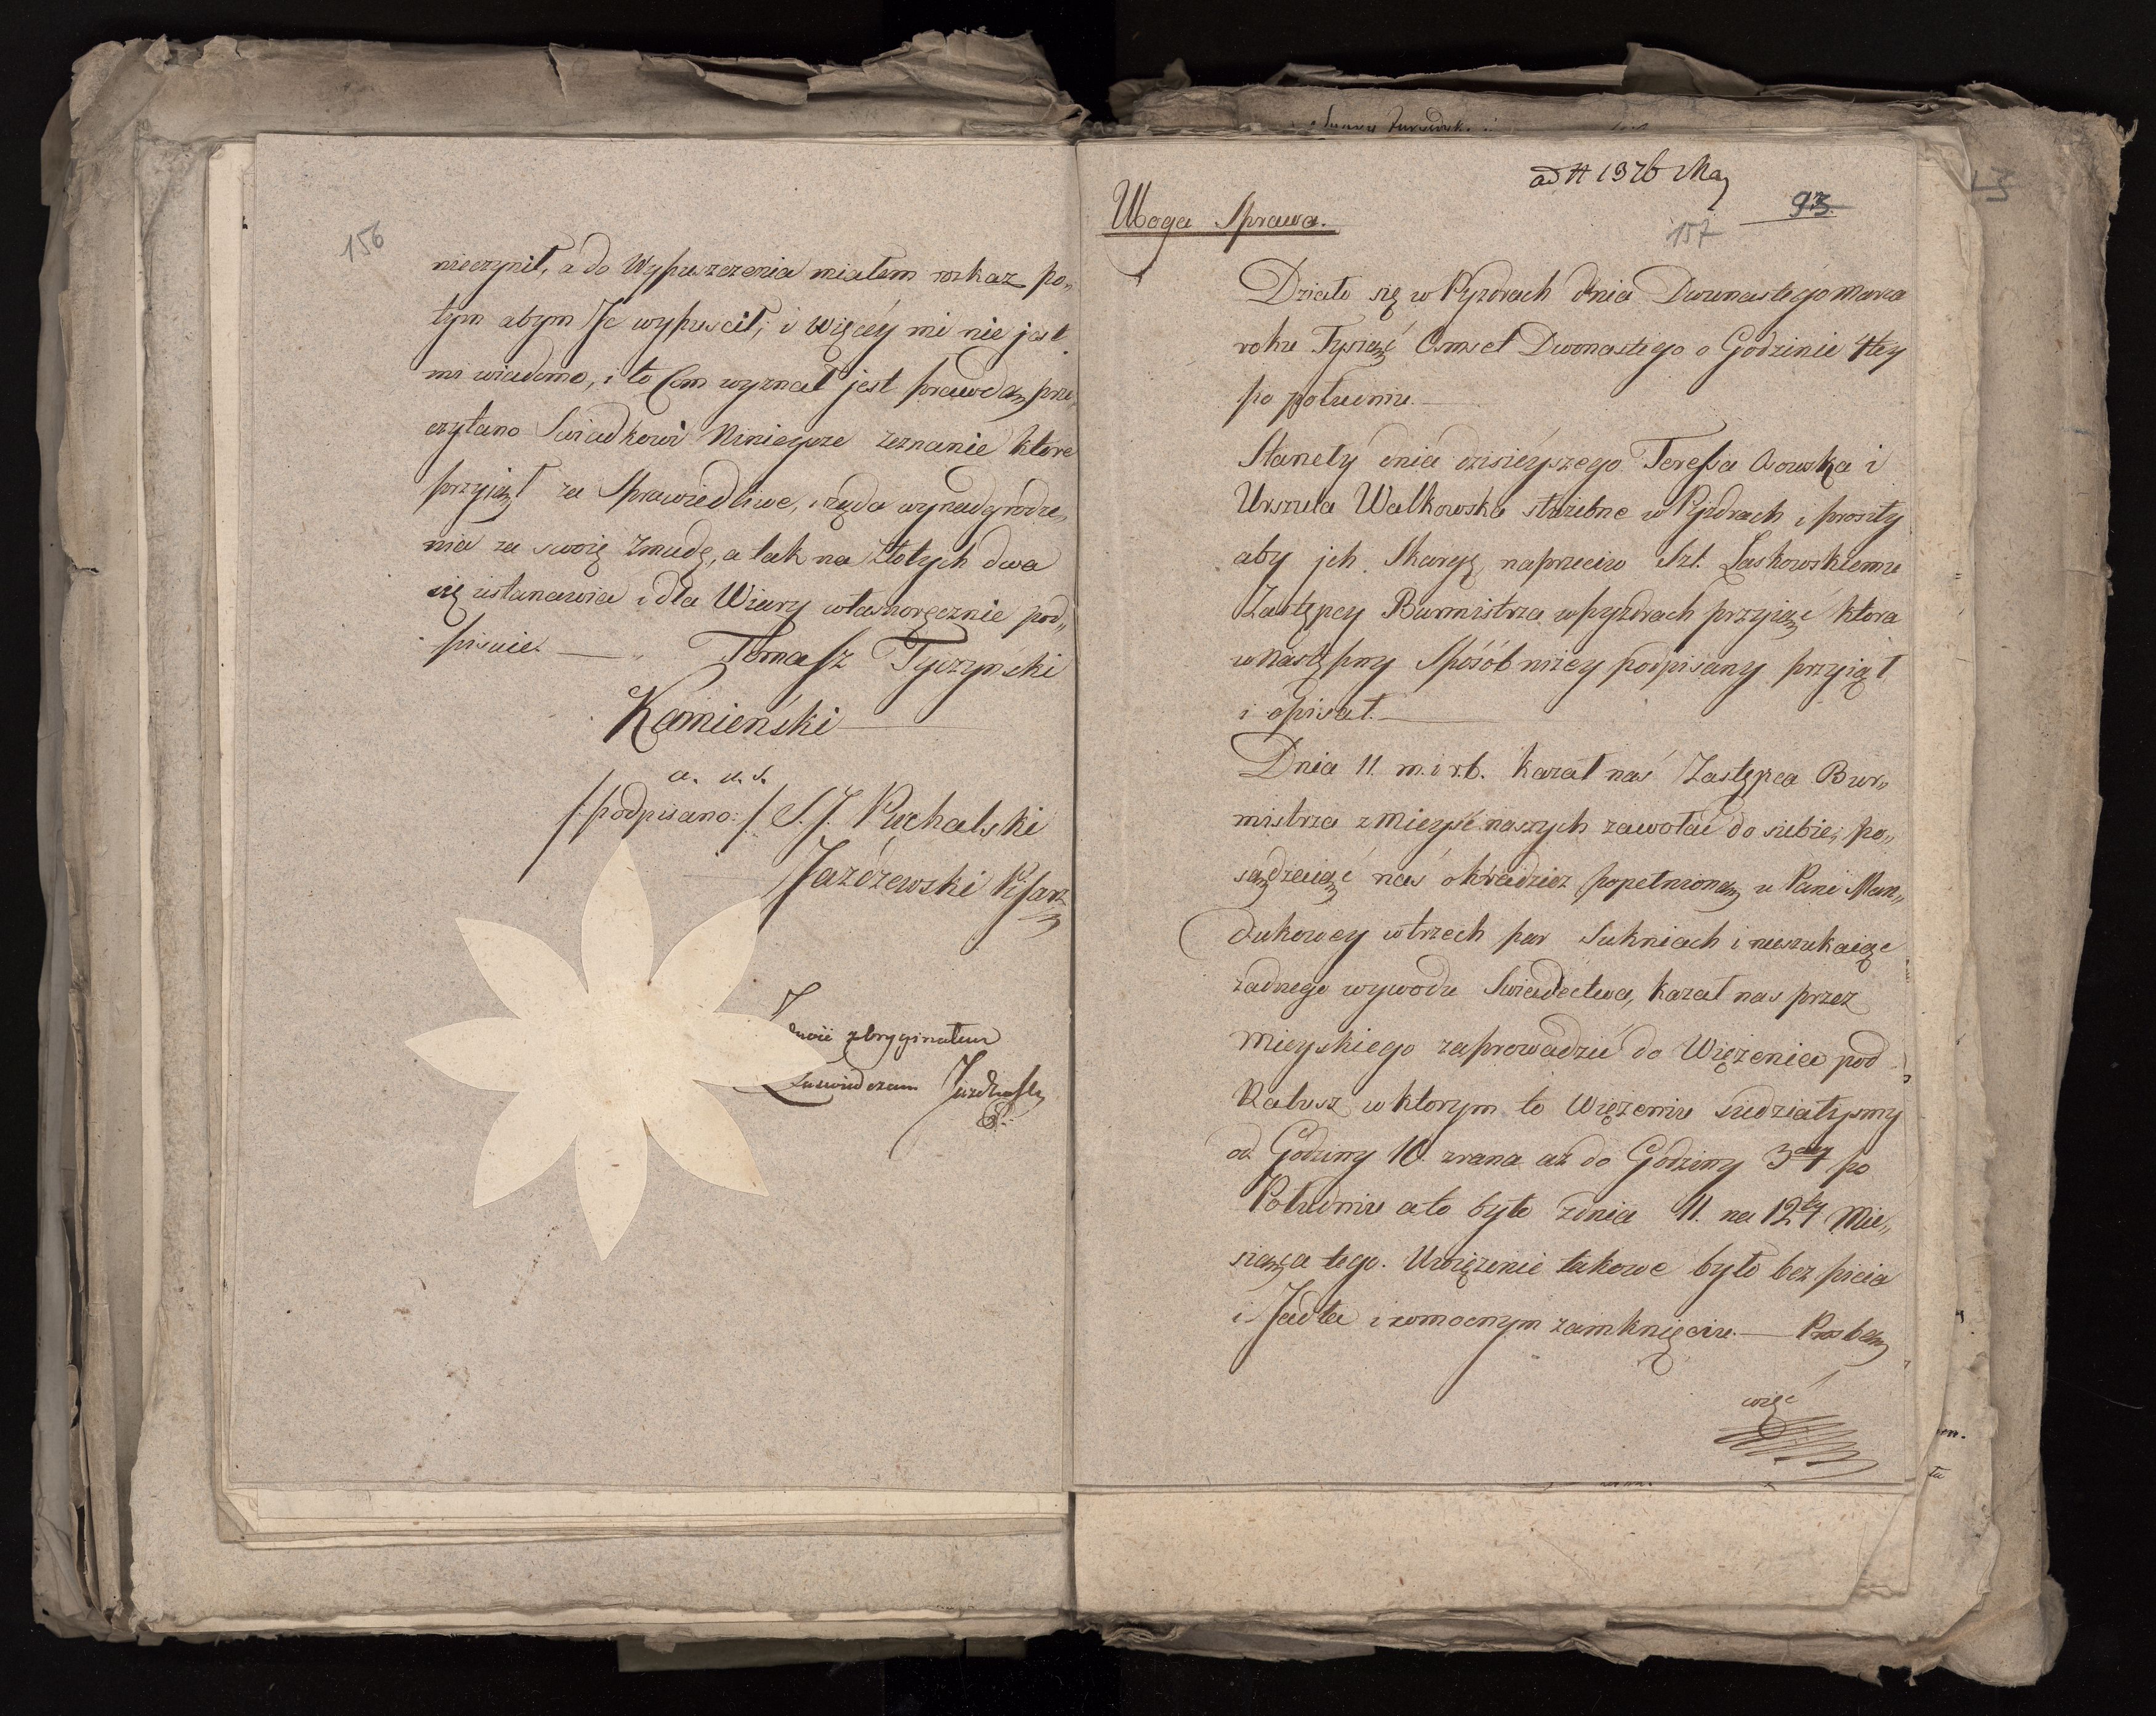 156
nieczynił, a do Wypuszczenia miałem rozkaz po„
tym abym Je wypuścił, i więcéy mi nie jest
mi wiadomo, i to com wyznał jest prawdą, prze„
czytano Swiadkowi Ninieysze zeznanie które
przyiął za Sprawiedliwe, i ząda wynadgrodze„
nia za swoię zmudę, a tak na złotych dwa
się ustanawia i dla Wiary własnoręcznie pod„
pisuie. — Tomasz Tyczyński
Kamieński
a. u. s.
/:podpisano:/ S. J. Puchalski
Jazdzewski Pisarz
oryginałem
Zaswiadczam Jazdzewski
P.
ad # 1376 Mag
93.
157
Uboga Sprawa.
Działo się w Pyzdrach dnia Dwunastego Marca
roku Tysiąć Osmset Dwonastego o Godzinie 4tey
po południu. —
Stanęły dnia dzisieyszego Teressa Osowska i
Urszula Walkowska służebne w Pyzdrach i prosiły
aby jch Skargę naprzeciw Szl. Laskowskiemu
Zastępcy Burmistrza w pyzdrach przyiąć która
w następny Sposób niżey podpisany przyiął
i opisał. —
Dnia 11. m. i r. b. kazał nas Zastępca Bur„
mistrza z mieysc naszych zawołać do siebie, po„
sądzaiąc nas o kradzież popełnioną u Pani Man„
dukowey w trzech par Sukniach i nieszukaiąc
żadnego wywodu Swiadectwa, kazał nas przez
mieyskiego zaprowadzić do Więzenia pod
Ratusz w ktorym to Więzeniu siedziałysmy
od Godziny 10. zrana aż do Godziny 3ciey po
Południu a to było z dnia 11. na 12ty Mie„
siąca tego. Uwięzienie takowe było bez picia
i Jadła i w mocnym zamknięciu. — Prosbą
więc